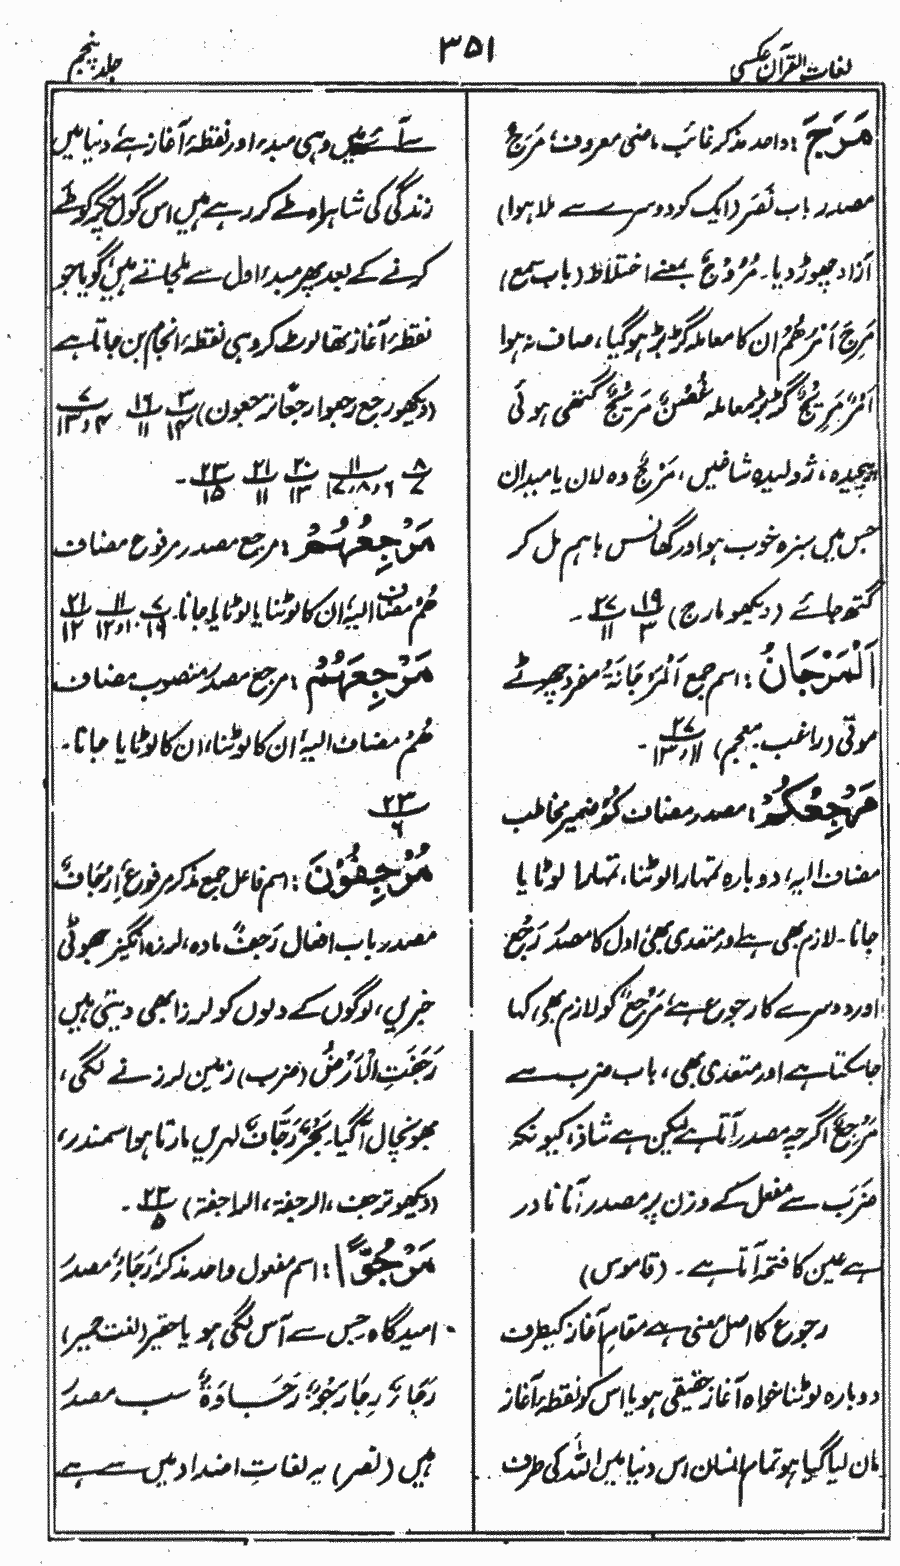 لغات القرآن عکسی
۳۵۱
جلد پنجم
مَرَجَ : واحد مذکر غائب ماضی معروف، مَرَجٌ
مصدر باب نَصَرَ (ایک کو دوسرے سے ملا ہوا)
آزاد چھوڑ دیا۔ مُرُوجٌ بمعنے اختلاط (باب سمع)
مَرَجَ اَمْرُھُمْ ان کا معاملہ گڑبڑ ہوگیا، صاف نہ ہوا
اَمْرٌ مَرِیْجٌ گڑبڑ معاملہ غُصْنٌ مَرِیْجٌ گتھی ہوئی
پیچیدہ، ژولیدہ شاخیں، مَرْجٌ وہ لان یا میدان
جس میں سبزہ خوب ہو اور گھانس باہم مل کر
گتھ جائے (دیکھو مارج) ۱۹/۳ ۲۷/۱۱ ۔
اَلْمَرْجَانُ : اسم جمع اَلْمَرْجَانَۃُ مفرد چھوٹے
موتی (راغب۔ معجم) ۲۷/۱۱،۱۳ ۔
مَرْجِعُکُمْ : مصدر مضاف کُمْ ضمیر مخاطب
مضاف الیہ، دوبارہ تمہارا لوٹنا، تمہارا لوٹایا
جانا۔ لازم بھی ہے اور متعدی بھی، اول کا مصدر رَجْعٌ
اور دوسرے کا رجوع ہے، مَرْجِعٌ کو لازم بھی، کہا
جاسکتا ہے اور متعدی بھی، باب ضرب سے
مَرْجِعٌ اگرچہ مصدر آتا ہے لیکن ہے شاذ، کیونکہ
ضَرَبَ سے مفعل کے وزن پر مصدر آنا نادر
ہے عین کا فتحہ آتا ہے۔ (قاموس)
رجوع کا اصل معنی ہے مقام آغاز کیطرف
دوبارہ لوٹنا خواہ آغاز حقیقی ہو یا اس کو نقطۂ آغاز
مان لیا گیا ہو تمام انسان اس دنیا میں اللہ کی طرف
سے آئے ہیں وہی مبدء اور نقطۂ آغاز ہے، دنیا میں
زندگی کی شاہراہ طے کر رہے ہیں اس گول چکر کو طے
کرنے کے بعد پھر مبدء اول سے ملجاتے ہیں، گویا جو
نقطۂ آغاز تھا لوٹ کر وہی نقطۂ انجام بن جاتا ہے
(دیکھو رجع رجعوا، رجعانہ رجعون) ۳/۱۴ ۱۶/۱۱ ۷/۴،۱۳
۸/۷ ۱۱/۶،۸،۱۷ ۲۰/۱۳ ۲۱/۱۱ ۲۳/۱۵ ۔
مَرْجِعُہُمْ : مرجع مصدر مرفوع مضاف
ھُمْ مضاف الیہ، ان کا لوٹنا یا لوٹایا جانا۔ ۷/۱۹ ۱۱/۱۰،۱۲ ۲۱/۱۲
مَرْجِعَہُمْ : مرجع مصدر منصوب مضاف
ھُمْ مضاف الیہ، ان کا لوٹنا، ان کا لوٹایا جانا۔
۲۳/۶
مُرْجِفُوْنَ : اسم فاعل جمع مذکر مرفوع، اِرْجَافٌ
مصدر باب افعال رَجْفٌ مادہ، لرزہ انگیز جھوٹی
خبریں، لوگوں کے دلوں کو لرزا بھی دیتی ہیں
رَجَفَتِ الْاَرْضُ (ضرب) زمین لرزنے لگی،
بھونچال آگیا، بَحْرٌ رَجَّافٌ لہریں مارتا ہوا سمندر،
(دیکھو ترجف، الرجفۃ، الراجفۃ) ۲۲/۵ ۔
مَرْجُوًّا : اسم مفعول واحد مذکر، رَجَاءٌ، مصدر
امیدگاہ جس سے آس لگی ہو یا حقیر (لغت حمیر)
رَجَاءٌ رِجَا رَجْوٌ، رَجَاوَۃٌ سب مصدر
ہیں (نصر) یہ لغاتِ اضداد میں سے ہے